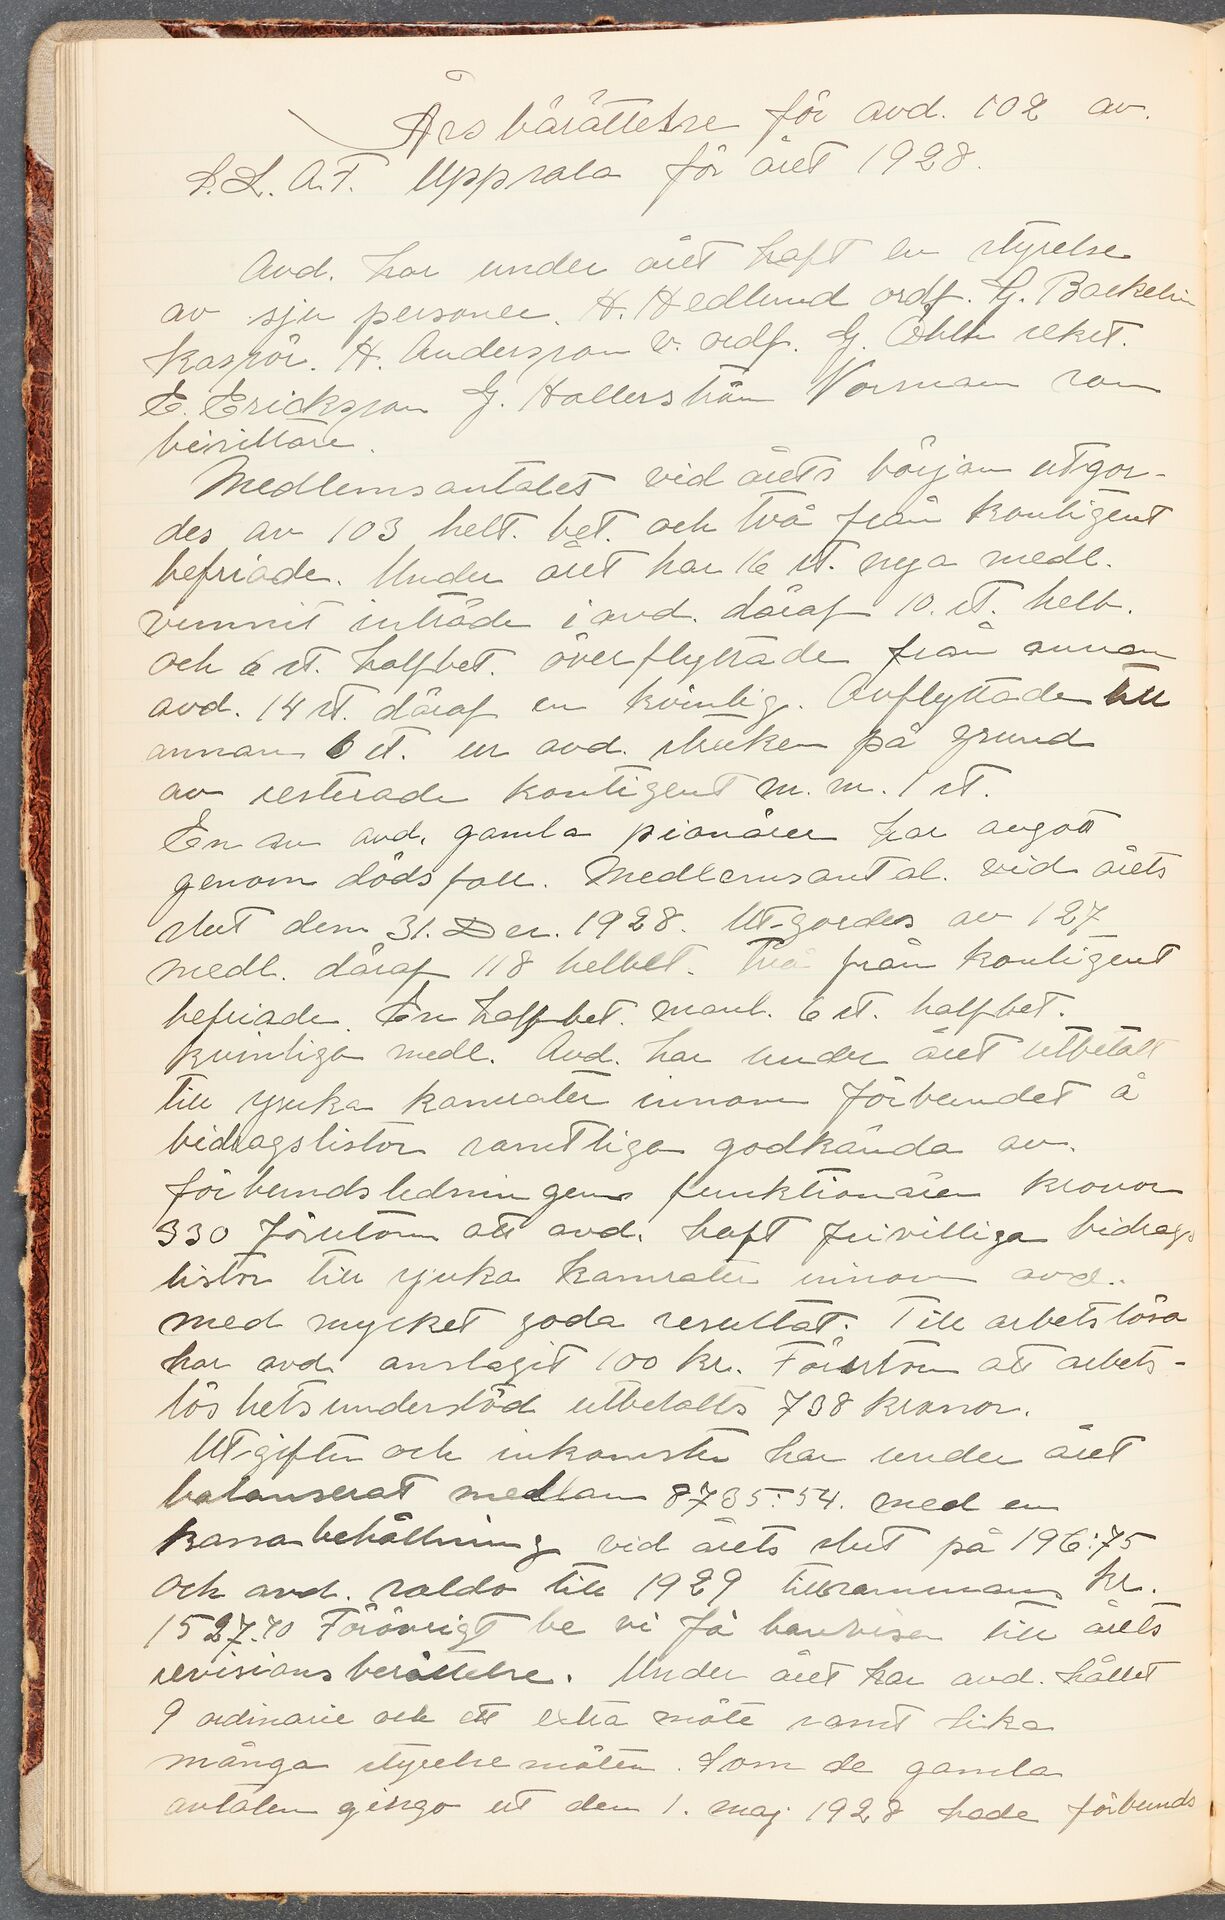 Årsbärättelse för avd. 102 av.
S.L.A.F. Uppsala för året 1928.
Avd. har under året haft en styrelse
av sju personer. H. Hedlund ordf. G. Backelin
kassör. H. Andersson v. ordf. G. Öhlen sekret.
E. Ericksson G. Hallerström Norman som
beisittare.
Medlemsantalet vid årets början utgor-
des av 103 helt. bet. och två från kontigent
befriade. Under året har 16 st. nya medl.
vunnit inträde i avd. däraf 10. st. helb.
och 6 st. halfbet. överflyttade från annan
avd. 14 st. däraf en kvinlig. Avflyttade till
annan 6 st. ur avd. struken på grund
av resterade kontigent m.m. 1 st.
En av avd. gamla pionärer har avgott
genom dödsfall. Medlemsantal. vid årets
slut dem 31. Dec. 1928. Ut-gordes av 127
medl. däraf 118 helbet. två från kontigent
befriade. En halfbet. manl. 6 st. halfbet.
kvinliga medl. Avd. har under året utbetalt
till sjuka kamrater innom förbundet å
bidragslistor samtliga godkända av.
förbundsledningens funktionärer kronor
330 Förutom att avd. haft frivilliga bidrags
listor till sjuka kamrater innom avd..
med mycket goda resultat. Till arbetslösa
har avd. anslagit 100 kr. Förutom att arbets-
löshetsunderstöd utbetalts 738 kronor.
Utgifter och inkomster har under året
balanserat mellan 8735:54. med en
kassabehållning vid årets slut på 196:75
och avd. saldo till 1929 tillsammans kr.
1527.70 Förövrigt be vi få hänvisa till årets
revisionsberättelse. Under året har avd. hållet
9 ordinarie och ett extra möte samt lika
många styrelsemöten. Som de gamla
avtalen gingo ut den 1. maj 1928 hade förbunds